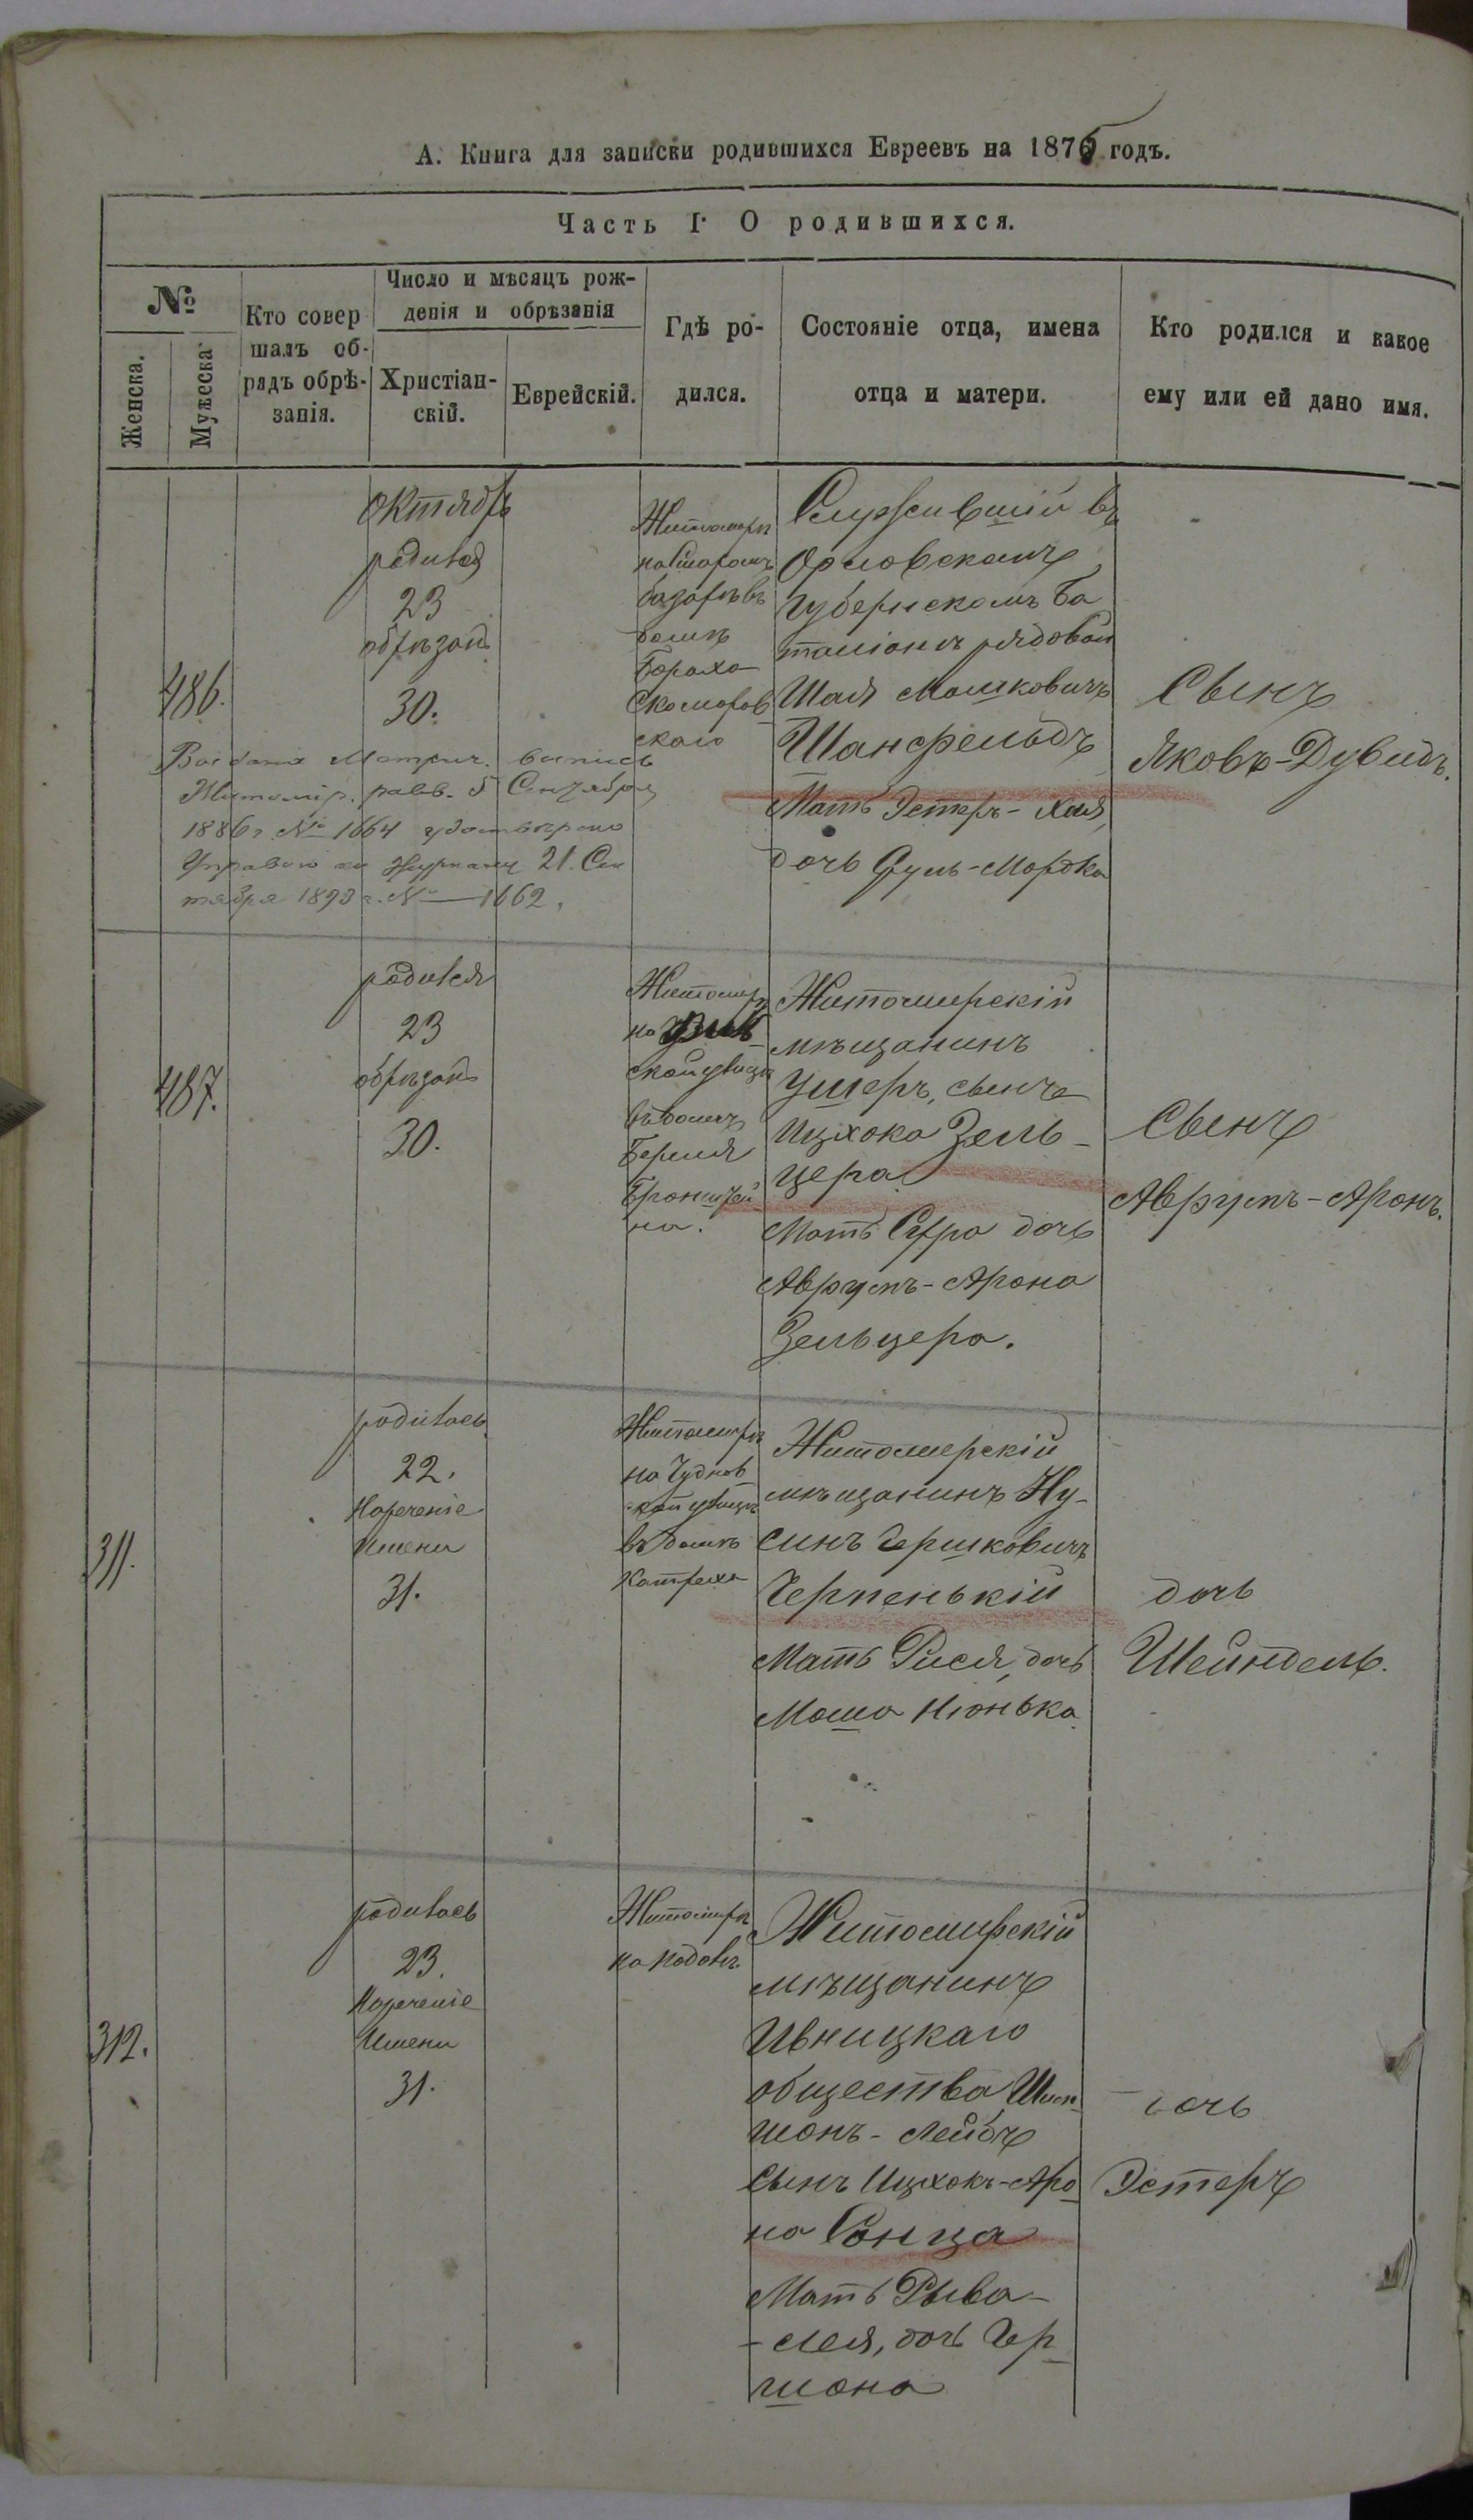 А. Книга для записки родившихся Евреевъ на 1875 годъ.
Часть I. О родившихся.
№
Женска.
Мужеска
Кто совер
шалъ об-
рядъ обрѣ-
занія.
Число и мѣсяцъ рож-
денія и обрѣзанія
Христіан-
скій.
Еврейскій.
Гдѣ ро-
дился.
Состояніе отца, имена
отца и матери.
Кто родился и какое
ему или ей дано имя.
486.
октябрь
родился
23
обрѣзанъ
30.
Житомиръ
на Старомъ
базарѣ въ
домѣ
Бороха
Скоморов
скаго
Служившій въ
Орловскомъ
Губернскомъ ба
таліонѣ рядовой
Шая Мошковичъ
Шансфельдъ
Мать Эстеръ-Хая,
дочь Сруль-Мордка
Сынъ
Яковъ-Дувидъ.
Метрич. выпись
Житомір. равв. 5 Сентября
1886 г. № 1664
21. Сен
тября 1893 г. № 1662.
487.
родился
23
обрѣзанъ
30.
Житомиръ
на
ской улицѣ
въ домѣ
Берля
Бронштей
на.
Житомирскій
мѣщанинъ
Ушеръ, сынъ
Ицхока Зель-
цера
Мать Сура дочь
Аврумъ-Арона
Зельцера.
Сынъ
Аврумъ-Аронъ.
311.
родилась
22.
Нареченіе
Имени
31.
Житомиръ
на Чуднов
ской улицѣ
въ домѣ
Житомирскій
мѣщанинъ Ну-
синъ Гершковичъ
Черненькій
Мать Рися, дочь
Моша Нюнька
дочь
Шейндель.
312.
родилась
23.
Нареченіе
Имени
31.
Житомиръ
на Подолѣ.
Житомирскій
мѣщанинъ
Ивницкаго
общества, Шим-
шонъ-Лейбъ
сынъ Ицхокъ-Аро
на Сонца
Мать Рыва-
-Лея, дочь Гер
шона
дочь
Эстеръ